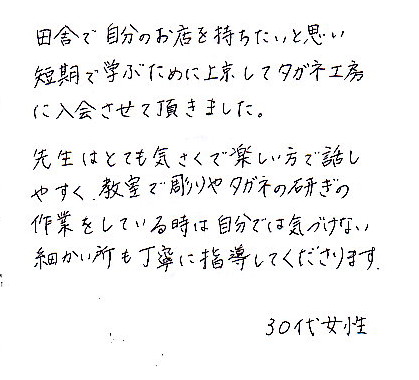 田舎で自分のお店を持ちたいと思い
短期で学ぶために上京してタガネ工房
に入会させて頂きました。
先生はとても気さくで楽しい方で話し
やすく、教室で彫りやタガネの研ぎの
作業をしている時は自分では気づけない
細かい所も丁寧に指導してくださります。
30代女性